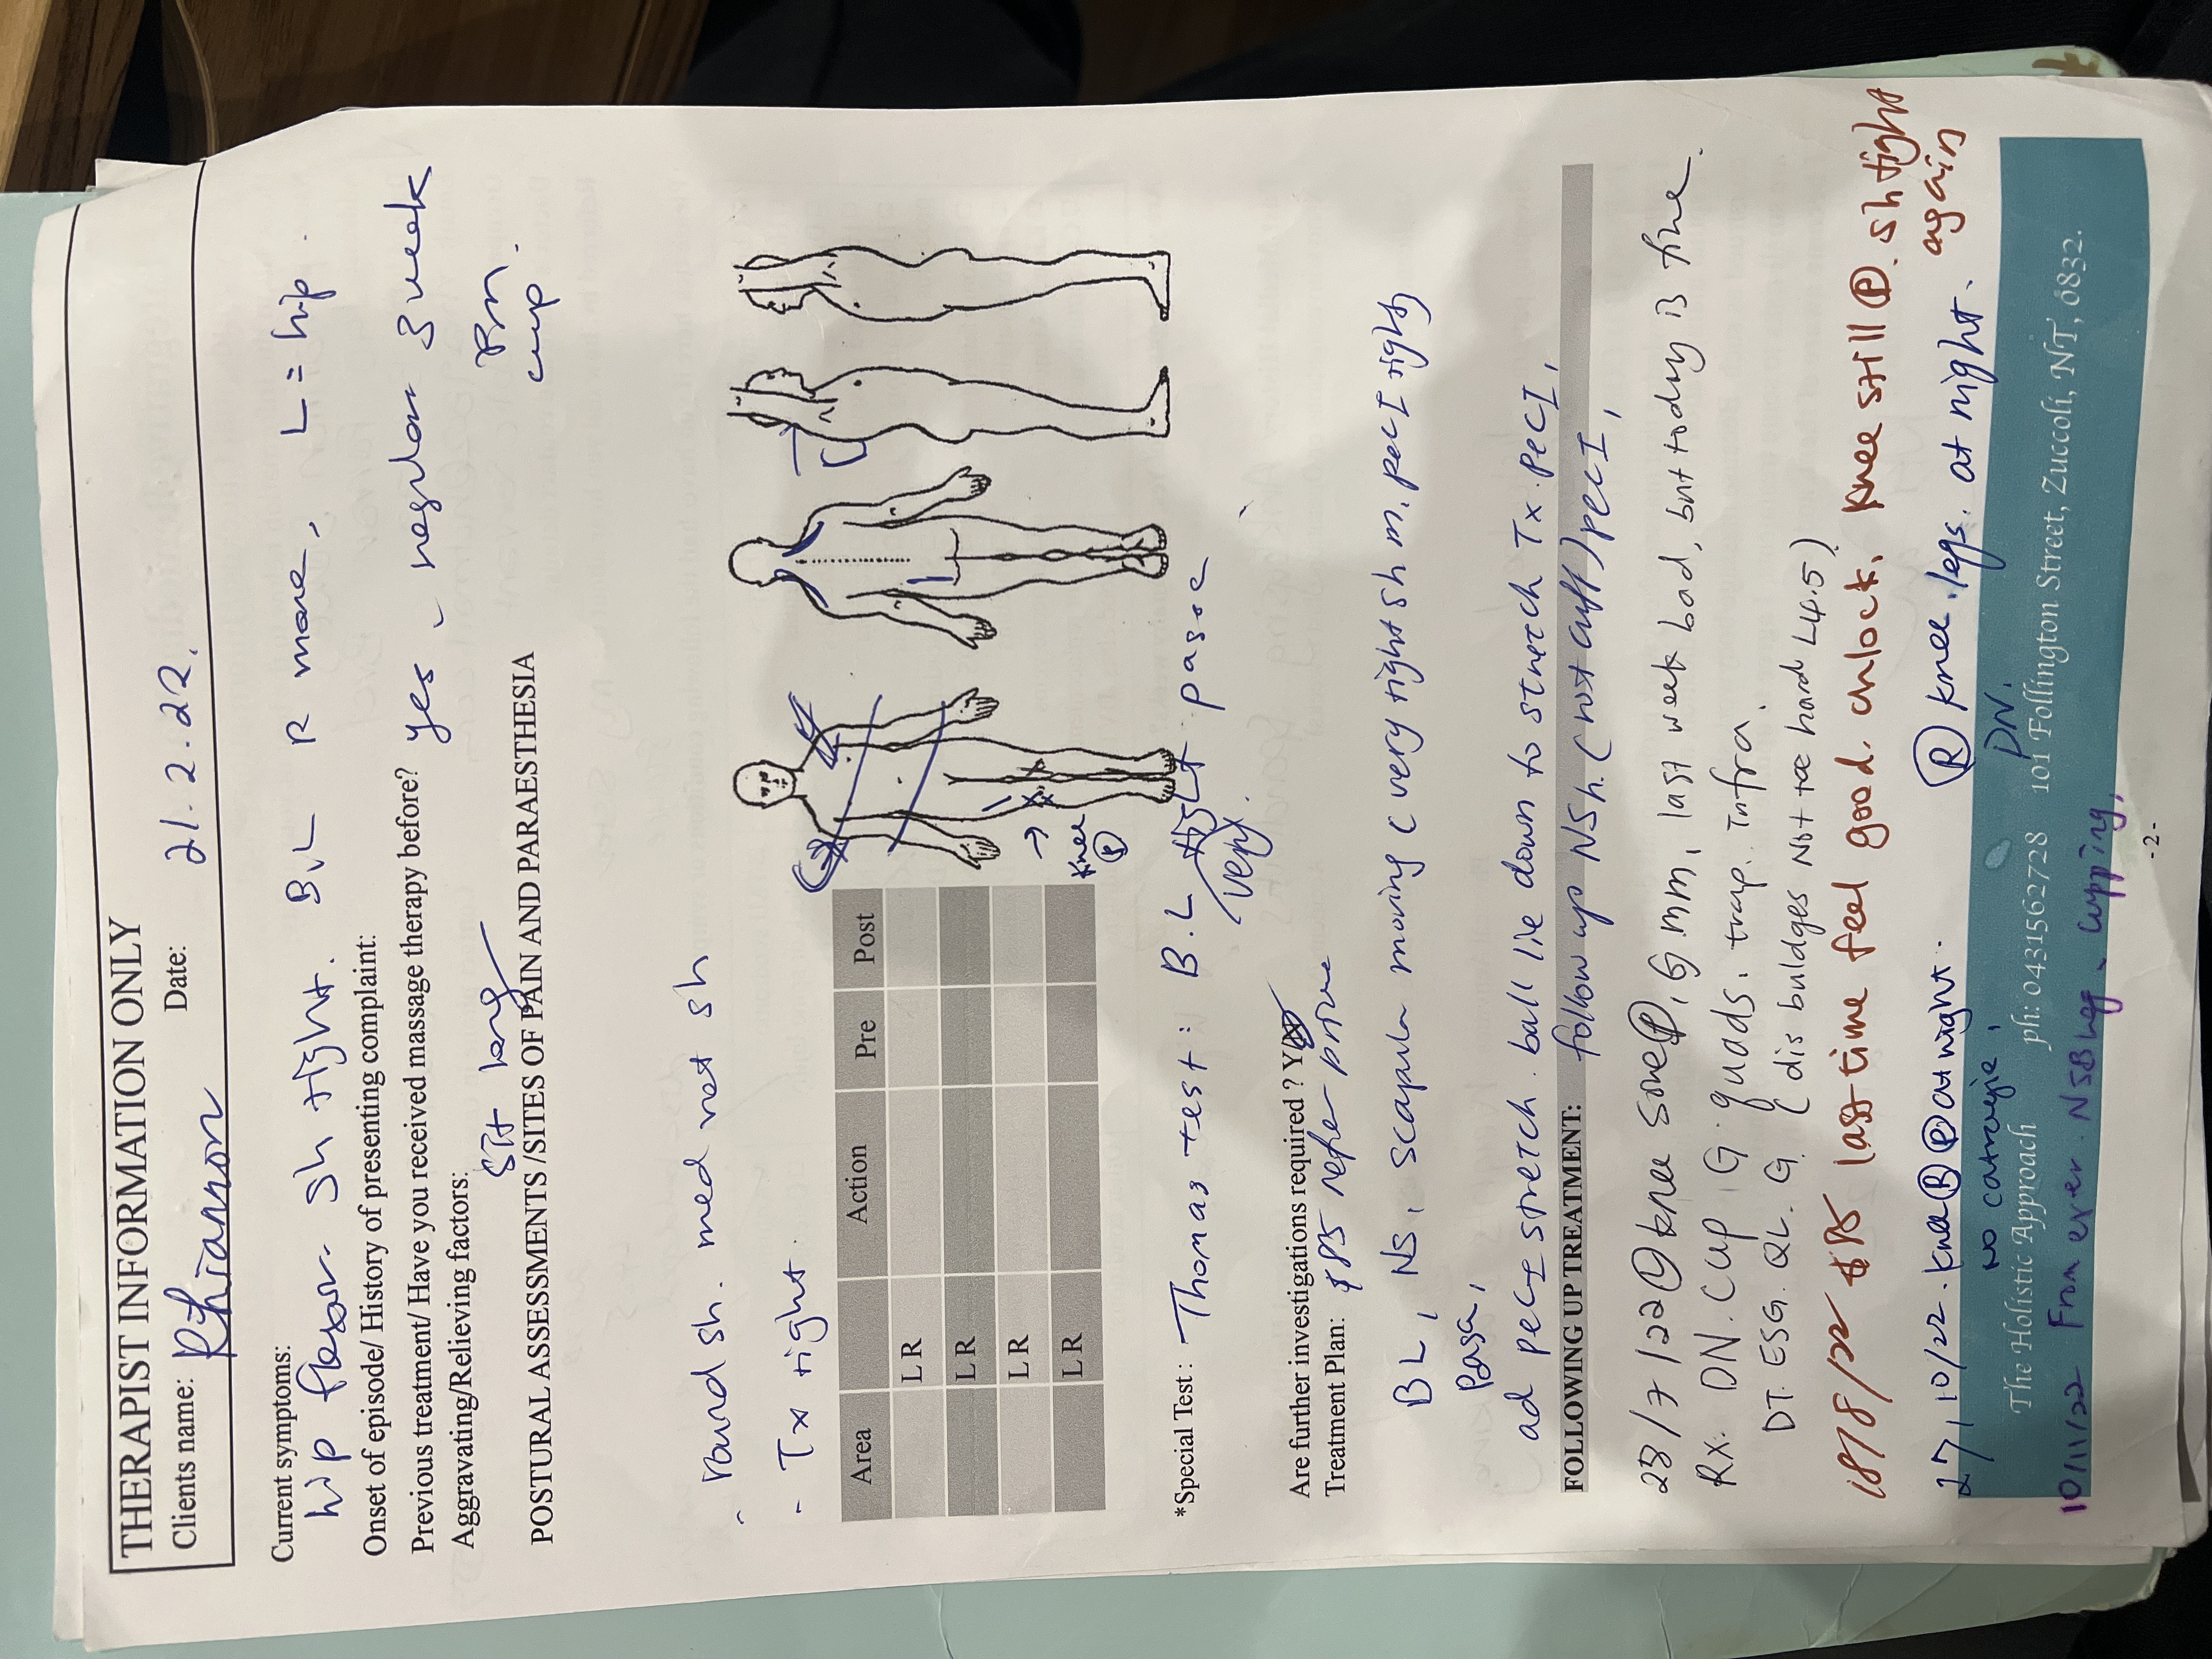 THERAPIST INFORMATION ONLY
Clients name: Rhiannon Date: 21.2.22.
Current symptoms:
hip flexor. sh tight. B,L R more, L = hip.
Onset of episode/ History of presenting complaint:
Previous treatment/ Have you received massage therapy before? yes - regular 3 week
Aggravating/Relieving factors:
sit long
Rm
cup
POSTURAL ASSESSMENTS /SITES OF PAIN AND PARAESTHESIA
- round sh. med rot sh
- Tx tight.
Area Action Pre Post
L R
L R
L R
L R
→ knee
P
*Special Test : Thomas test: B.L Lt pasoe
very.
Are further investigations required ? Y
Treatment Plan: $85 refer prone
BL, NS, scapula moving c very tight sh m. pecI tight
Pasoa,
ad pecI stretch. ball lie down to stretch Tx. pecI,
FOLLOWING UP TREATMENT: follow up NSh. (not cuff) pecI,
23/7/22 L knee sore P, G mm, last week bad, but today is fine.
Rx. DN. cup G. quads. trap. Infra.
DT. ESG. QL. G. (dis buldges Not too hard L4.5)
18/8/22 $85 last time feel good. unlock. knee still P. sh tight
again
27/10/22. knee B P at night. R knee. legs. at night.
no catragie. DN.
The Holistic Approach ph: 0431562728 101 Follington Street, Zuccoli, NT, 0832.
10/11/22 From exer. NSB leg - cupping,
-2-